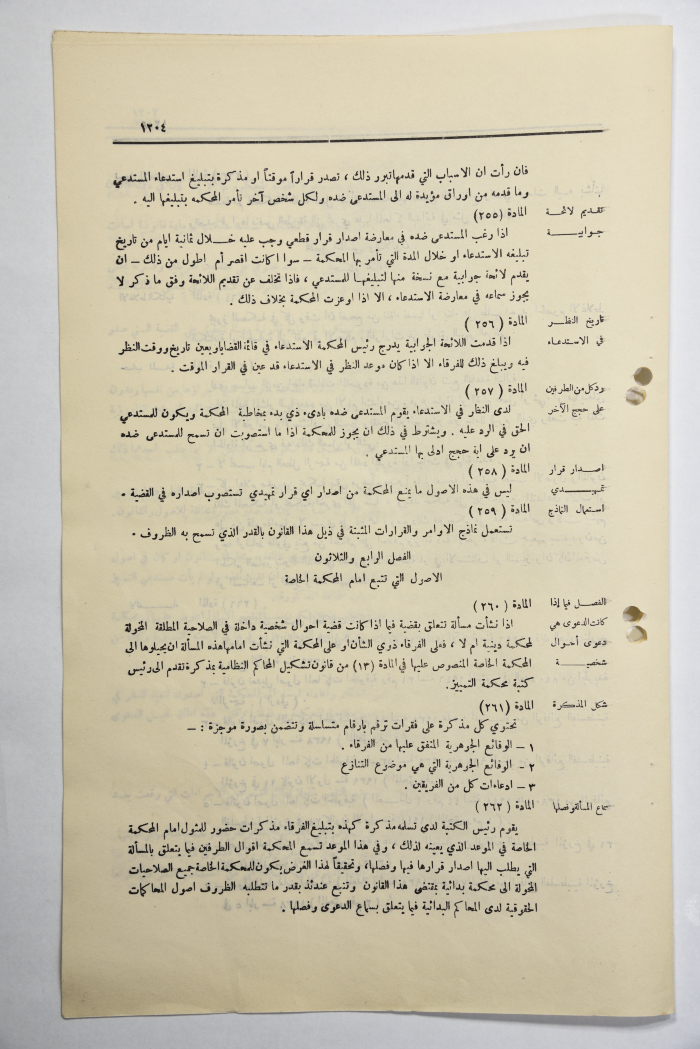 ١٢٠٤
فان رأت ان الاسباب التي قدمها تبرر ذلك ، تصدر قراراً موقتاً او مذكرة بتبليغ استدعاء المستدعي
وما قدمه من اوراق مؤيدة له الى المستدعى ضده ولكل شخص آخر تأمر المحكمه بتبليغها اليه .
تقديم لائحة
جوابية
المادة (٢٥٥)
اذا رغب المستدعى ضده في معارضة اصدار قرار قطعي وجب عليه خلال ثمانية ايام من تاريخ
تبليغه الاستدعاء او خلال المدة التي تأمر بها المحكمة – سوا اكانت اقصر أم اطول من ذلك – ان
يقدم لائحة جوابية مع نسخة منها لتبليغها للمستدعي ، فاذا تخلف عن تقديم اللائحة وفق ما ذكر لا
يجوز سماعه في معارضة الاستدعاء ، الا اذا اوعزت المحكمة بخلاف ذلك .
تاريخ النظر
في الاستدعاء
المادة ( ٢٥٦ )
اذا قدمت اللائحة الجوابية يدرج رئيس المحكمة الاستدعاء في قائمة القضايا ويعين تاريخ ووقت النظر
فيه ويبلغ ذلك للفرقاء الا اذا كان موعد النظر في الاستدعاء قد عين في القرار الموقت .
رد كل من الطرفين
على حجج الآخر
المادة ( ٢٥٧ )
لدى النظر في الاستدعاء يقوم المستدعى ضده بادىء ذي بدء بمخاطبة المحكمة ويكون للمستدعي
الحق في الرد عليه . ويشترط في ذلك ان يجوز للمحكمة اذا ما استصوبت ان تسمح للمستدعى ضده
ان يرد على اية حجج ادلى بها المستدعي .
اصدار قرار
تمهيدي
المادة ( ٢٥٨ )
ليس في هذه الاصول ما يمنع المحكمة من اصدار اي قرار تمهيدي تستصوب اصداره في القضية .
استعمال النماذج
المادة ( ٢٥٩ )
تستعمل نماذج الاوامر والقرارات المثبتة في ذيل هذا القانون بالقدر الذي تسمح به الظروف .
الفصل الرابع والثلاثون
الاصول التي تتبع امام المحكمة الخاصة
الفصل فيما إذا
كانت الدعوى هي
دعوى أحوال
شخصية
المادة ( ٢٦٠ )
اذا نشأت مسألة تتعلق بقضية فيما اذا كانت قضية احوال شخصية داخلة في الصلاحية المطلقة المخولة
لمحكمة دينية ام لا ، فعلى الفرقاء ذوي الشأن او على المحكمة التي نشأت امامها هذه المسألة ان يحيلوها الى
المحكمة الخاصة المنصوص عليها في المادة (١٣) من قانون تشكيل المحاكم النظامية بمذكرة تقدم الى رئيس
كتبة محكمة التمييز.
شكل المذكرة
المادة (٢٦١)
تحتوي كل مذكرة على فقرات ترقم بارقام متسلسلة وتتضمن بصورة موجزة : –
١ – الوقائع الجوهرية المتفق عليها من الفرقاء .
٢ – الوقائع الجوهرية التي هي موضوع التنازع
٣ – ادعاءات كل من الفريقين .
سماع المسألة وفصلها
المادة (٢٦٢)
يقوم رئيس الكتبة لدى تسلمه مذكرة كهذه بتبليغ الفرقاء مذكرات حضور للمثول امام المحكمة
الخاصة في الموعد الذي يعينه لذلك ، وفي هذا الموعد تسمع المحكمة اقوال الطرفين فيما يتعلق بالمسألة
التي يطلب اليها اصدار قرارها فيها وفصلها، وتحقيقاً لهذا الغرض يكون للمحكمة الخاصة جميع الصلاحيات
المخولة الى محكمة بدائية بمقتضى هذا القانون وتتبع عندئذ بقدر ما تتطلبه الظروف اصول المحاكمات
الحقوقية لدى المحاكم البدائية فيما يتعلق بسماع الدعوى وفصلها .